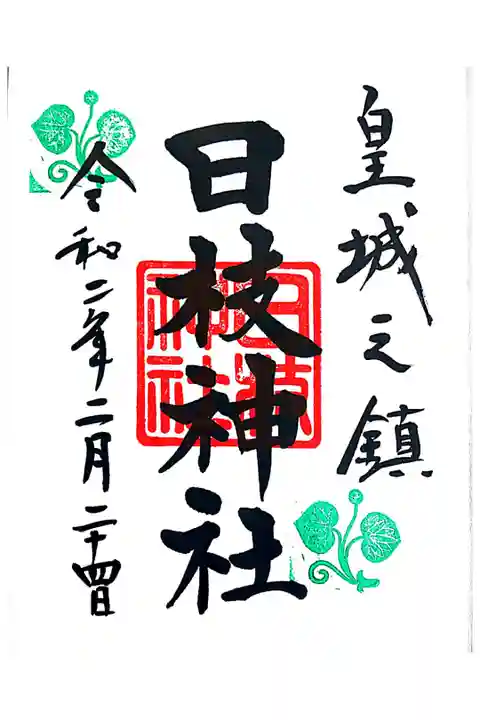 皇城之鎮
日枝神社
令和二年二月二十四日
日枝神社